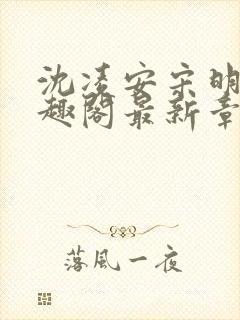 沈凌安宋明
趣阁最新章
落風一夜